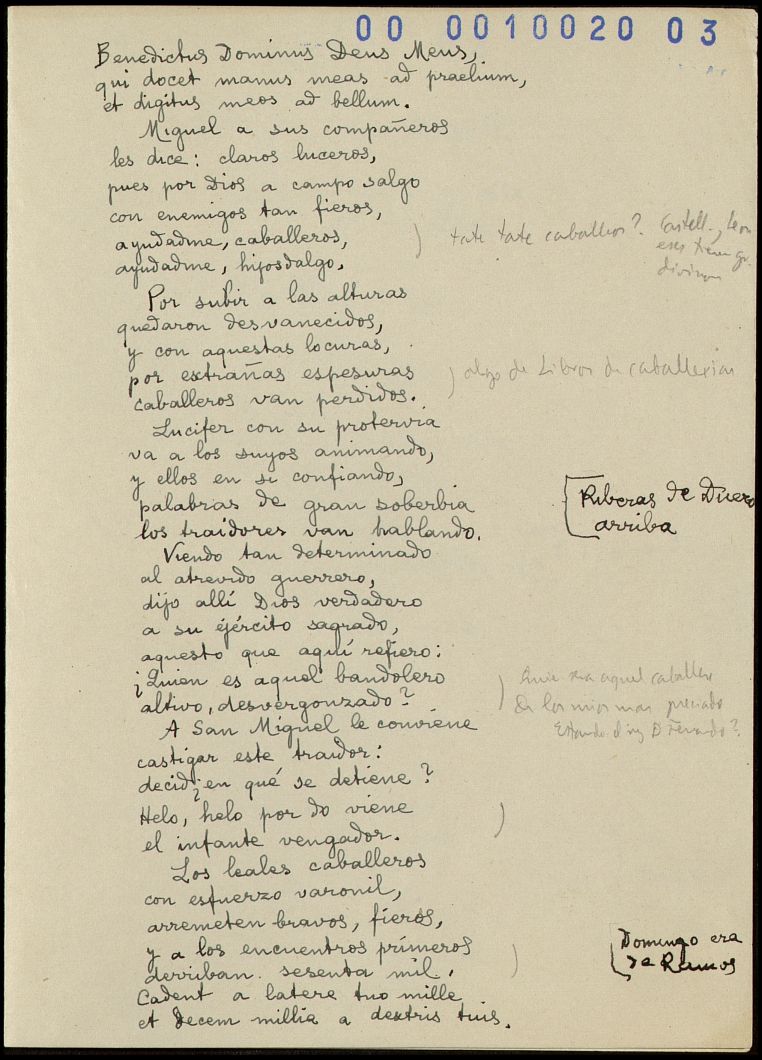 00 0010020 03
Benedictus Dominus Deus Meus,
qui docet manus meas ad praelium,
et digitus meos ad bellum.
Miguel a sus compañeros
les dice: claros luceros,
pues por Dios a campo salgo
con enemigos tan fieros,
ayudadme, caballeros,
ayudadme, hijosdalgo.
) tate tate caballeros? Castell., leon
eses tienen gr.
Por subir a las alturas
quedaron desvanecidos,
y con aquestas locuras,
por extrañas espesuras
caballeros van perdidos.
) algo de Libros de caballerias
Lucifer con su protervia
va a los suyos animando,
y ellos en si confiando,
palabras de gran soberbia
los traidores van hablando.
[Riberas de Duero
arriba
Viendo tan determinado
al atrevido guerrero,
dijo allí Dios verdadero
a su éjército sagrado,
aquesto que aquí refiero:
¿Quien es aquel bandolero
altivo, desvergonzado?
) Quie sea aquel caballero
de los mios mas preciado
Estando el rey D Fernando?
A San Miguel le conviene
castigar este traidor:
decid ¿en qué se detiene?
Helo, helo por do viene
el infante vengador. )
Los leales caballeros
con esfuerzo varonil,
arremeten bravos, fieros,
y a los encuentros primeros
derriban sesenta mil. )
[Domingo era
de Ramos
Cadent a latere tuo mille
et decem millia a dextris tuis.